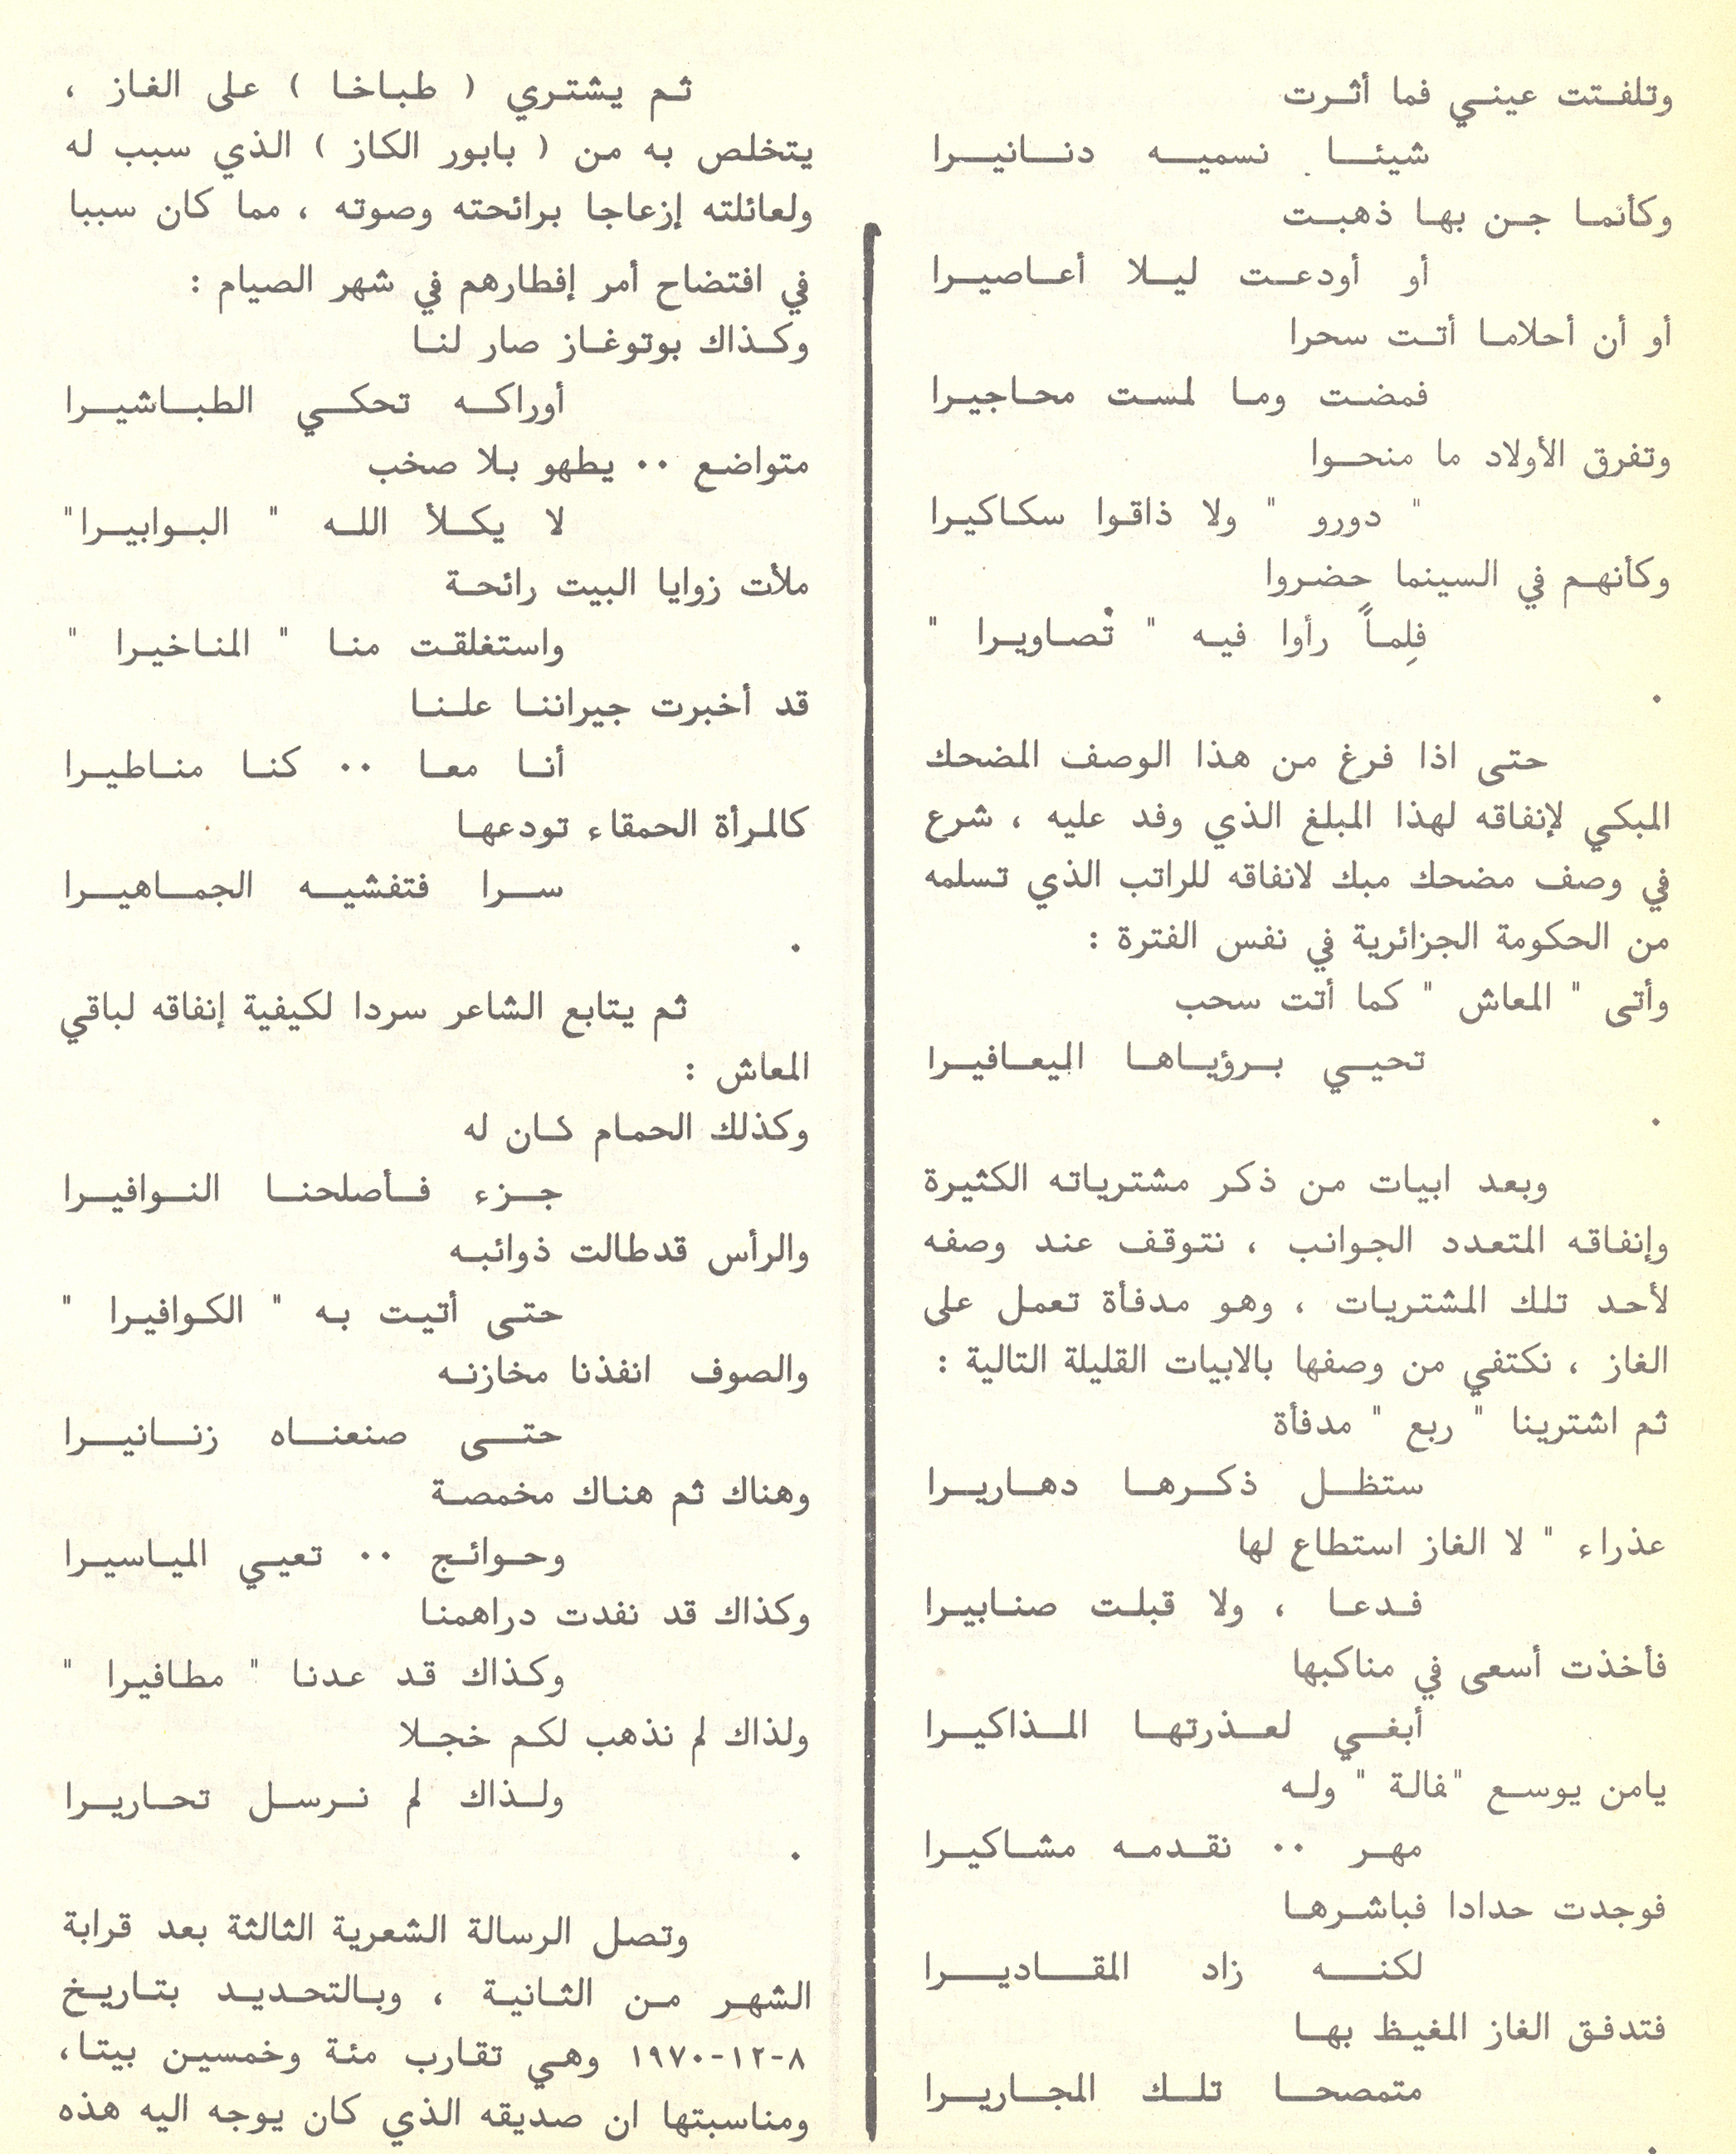 وتلفتت عيني فما أثرت
شيئا نسميه دنانيرا
وكأنما جن بها ذهبت
أو أودعت ليلا أعاصيرا
أو أن أحلاما أتت سحرا
فمضت وما لمست محاجيرا
وتفرق الأولاد ما منحوا
" دورو " ولا ذاقوا سكاكيرا
وكأنهم في السينما حضروا
فلِماً رأوا فيه " تُصاويرا "
.
حتى اذا فرغ من هذا الوصف المضحك
المبكي لإنفاقه لهذا المبلغ الذي وفد عليه ، شرع
في وصف مضحك مبك لانفاقه للراتب الذي تسلمه
من الحكومة الجزائرية في نفس الفترة :
وأتى " المعاش " كما أتت سحب
تحيي برؤياها اليعافيرا
.
وبعد ابيات من ذكر مشترياته الكثيرة
وإنفاقه المتعدد الجوانب ، نتوقف عند وصفه
لأحد تلك المشتريات ، وهو مدفأة تعمل على
الغاز ، نكتفي من وصفها بالابيات القليلة التالية :
ثم اشترينا " ربع " مدفأة
ستظل ذكرها دهاريرا
عذراء " لا الغاز استطاع لها
فدعا ، ولا قبلت صنابيرا
فأخذت أسعى في مناكبها
أبغي لعذرتها المذاكيرا
يامن يوسع "فالة " وله
مهر ٠٠ نقدمه مشاكيرا
فوجدت حدادا فباشرها
لكنه زاد المقاديرا
فتدفق الغاز المغيظ بها
متمصحا تلك المجاريرا
.
ثم يشتري ( طباخا ) على الغاز ،
يتخلص به من ( بابور الكاز ) الذي سبب له
ولعائلته إزعاجا برائحته وصوته ، مما كان سببا
في افتضاح أمر إفطارهم في شهر الصيام :
وكذاك بوتوغاز صار لنا
أوراكه تحكي الطباشيرا
متواضع ٠٠ يطهو بلا صخب
لا يكلأ الله " البوابيرا"
ملأت زوايا البيت رائحة
واستغلقت منا " المناخيرا "
قد أخبرت جيراننا علنا
أنا معا ٠٠ كنا مناطيرا
كالمرأة الحمقاء تودعها
سرا فتفشيه الجماهيرا
.
ثم يتابع الشاعر سردا لكيفية إنفاقه لباقي
المعاش :
وكذلك الحمام كان له
جزء فأصلحنا النوافيرا
والرأس قدطالت ذوائبه
حتى أتيت به " الكوافيرا "
والصوف انفذنا مخازنه
حتى صنعناه زنانيرا
وهناك ثم هناك مخمصة
وحوائج ٠٠ تعيي المياسيرا
وكذاك قد نفدت دراهمنا
وكذاك قد عدنا " مطافيرا "
ولذاك لم نذهب لكم خجلا
ولذاك لم نرسل تحاريرا
.
وتصل الرسالة الشعرية الثالثة بعد قرابة
الشهر من الثانية ، وبالتحديد بتاريخ
٨-١٢-١٩٧٠ وهي تقارب مئة وخمسين بيتا،
ومناسبتها ان صديقه الذي كان يوجه اليه هذه